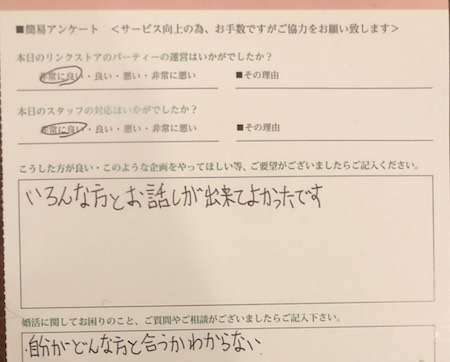 ■簡易アンケート ＜サービス向上の為、お手数ですがご協力をお願い致します＞
本日のリンクストアのパーティーの運営はいかがでしたか？
非常に良い・良い・悪い・非常に悪い ■その理由
本日のスタッフの対応はいかがでしたか？
非常に良い・良い・悪い・非常に悪い ■その理由
こうした方が良い・このような企画をやってほしい等、ご要望がございましたらご記入ください。
いろんな方とお話しが出来てよかったです
婚活に関してお困りのこと、ご質問やご相談がございましたらご記入下さい。
・自分がどんな方と合うかわからない